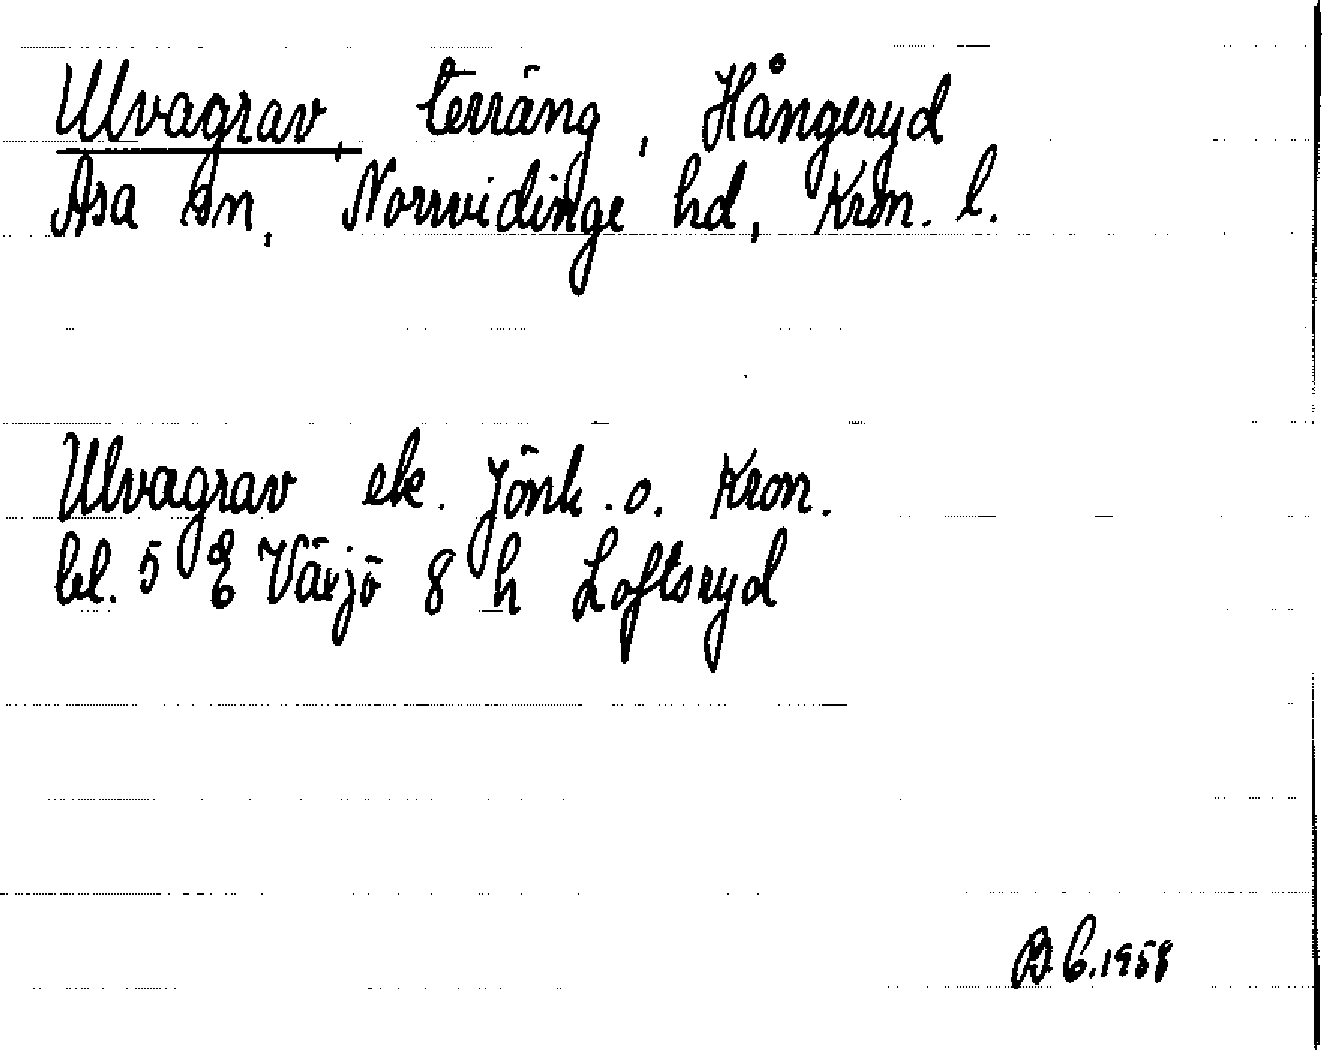 Ulvagrav, terräng, Hångeryd
Asa sn, Norrvidinge hd, Kron. l.
Ulvagrav ek. Jönk. o. Kron.
bl. 5 E Växjö 8 h Loftsryd
B C. 1958